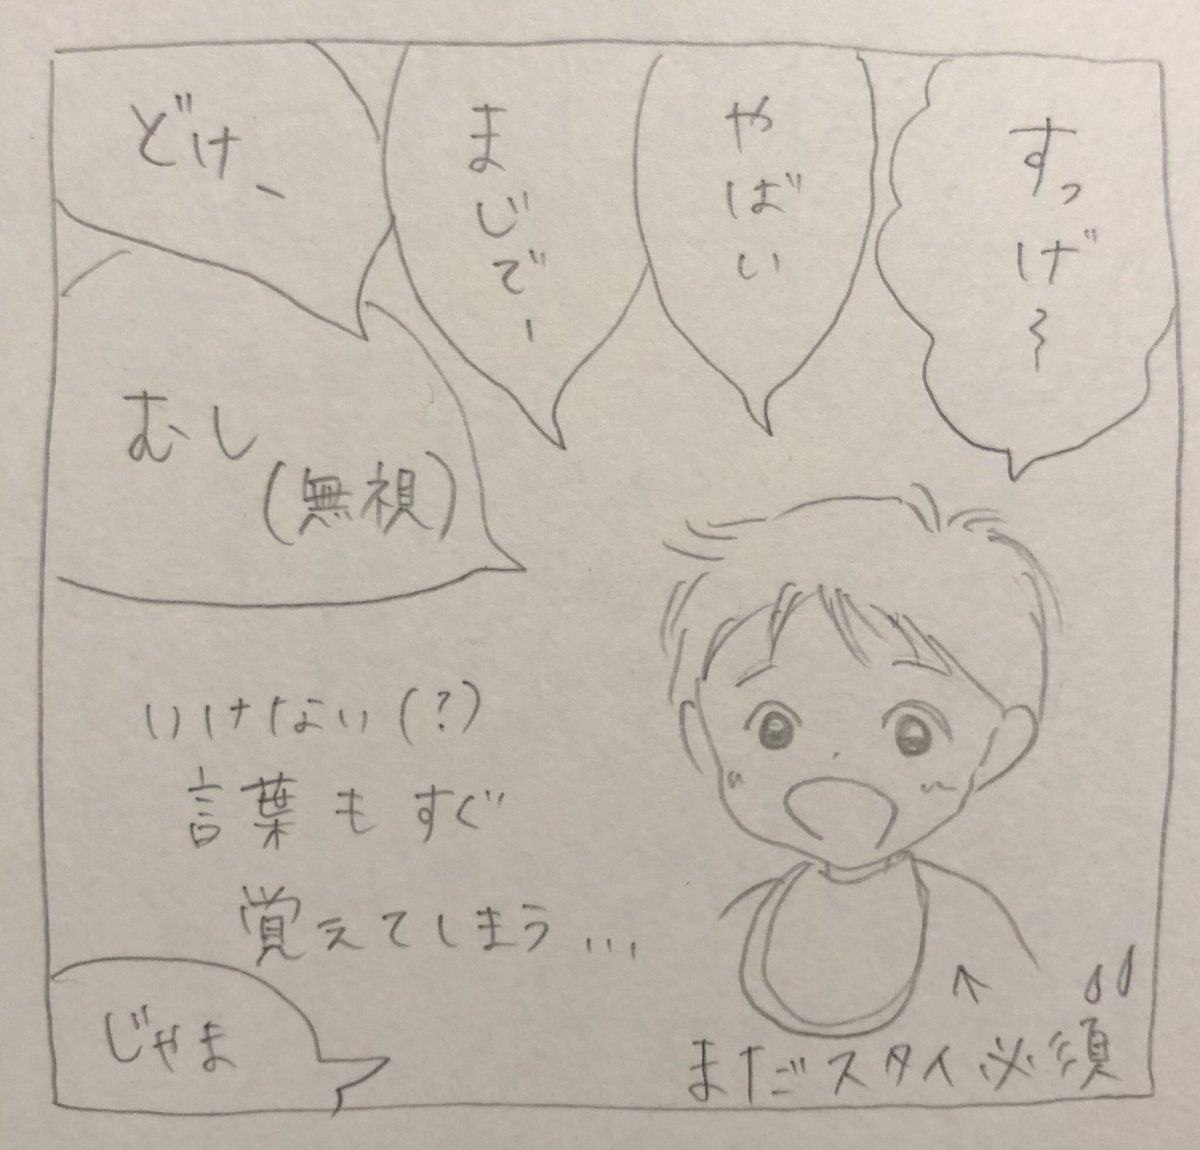 すっげ〜
やばい
まじでー
どけ、
むし
(無視)
いけない(?)
言葉もすぐ
覚えてしまう...
じゃま
↑
まだスタイ必須